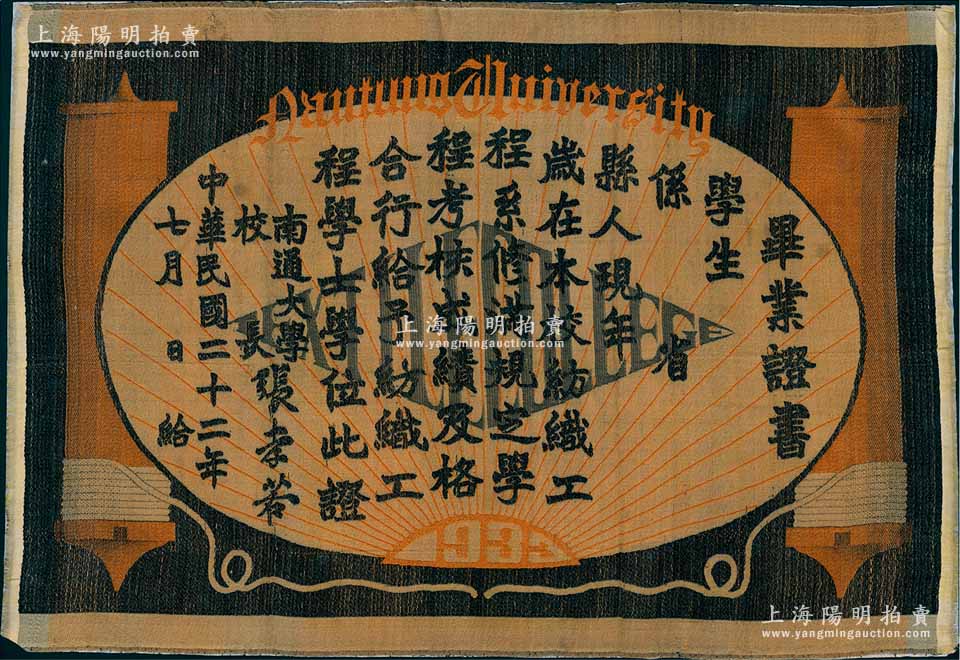 上海陽明拍賣
www.yangmingauction.com
Nantung University
畢業證書
學生
係 省
縣人現年
歲在本校紡織工
程系修滿規定學
程考核成績及格
合行給予紡織工
程學士學位此證
南通大學
校 長 張孝若
中華民國二十二年
七月 日 給
COLLEGE
上海陽明拍賣
www.yangmingauction.com
1933
上海陽明拍賣
www.yangmingauction.com